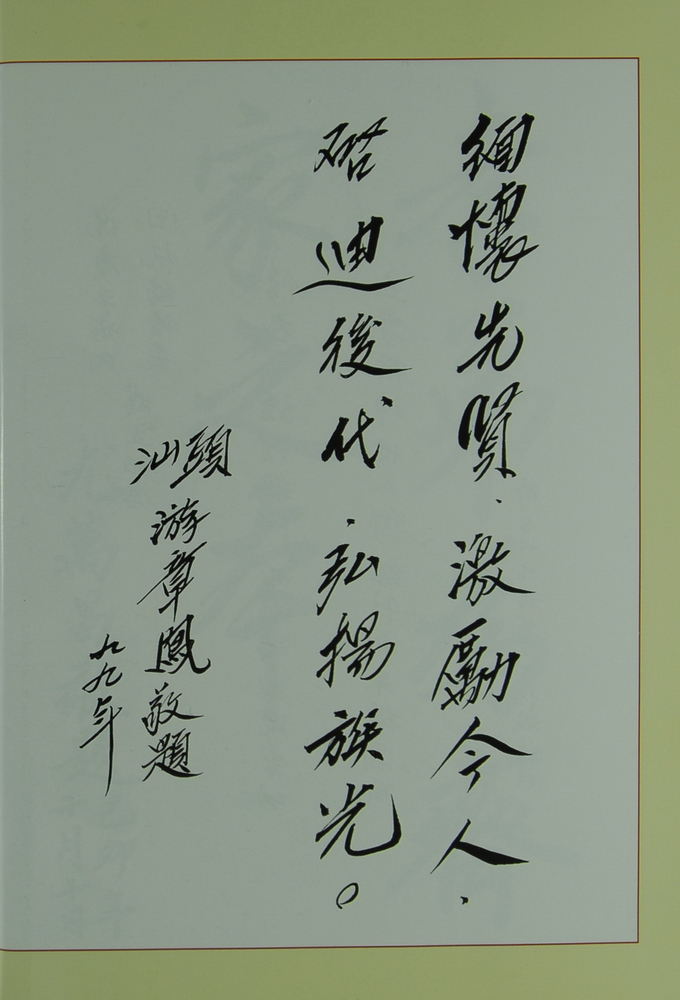 缅懷先贤、激勵今人、
啓迪後代、弘揚族光。
汕頭游章鳳敬題
九九年